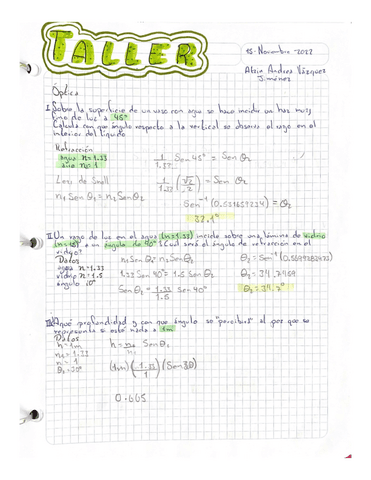 TALLER
15-Noviembre 2022
Jiménez
Óptica
I. Sobre la superficie de un vaso con agua se hace incidir un haz muy
fino de luz a 45°
Calcula con que ángulo respecto a la vertical se observa el rayo en el
interior del líquido
Refracción
agua n=1.33
n=1
n1 Senθ1 = n2 Senθ2
1/1.33 Sen 45° = Sen θ2
1/1.33 (√2/2) = Sen θ2
= θ2
32.1°
II. Un rayo de luz en el agua (n=1.33) incide sobre una lámina de vidrio
(n=1.5) a un ángulo de 40° Cuál será el ángulo de refracción en el
vidrio?
Datos
agua n=1.33
vidrio n=1.5
ángulo
1.33 Sen 40° = 1.5 Sen θ2
Sen θ2 = 1.33/1.5 Sen 40°
θ2 = 34.7°
III. A qué profundidad y con que ángulo se "percibirá" el pez que se
representa si este nada a 1m
Datos
h = 1m
n1 = 1.33
n = 1
(1m) (1.33/1) (Sen 30)
0.665